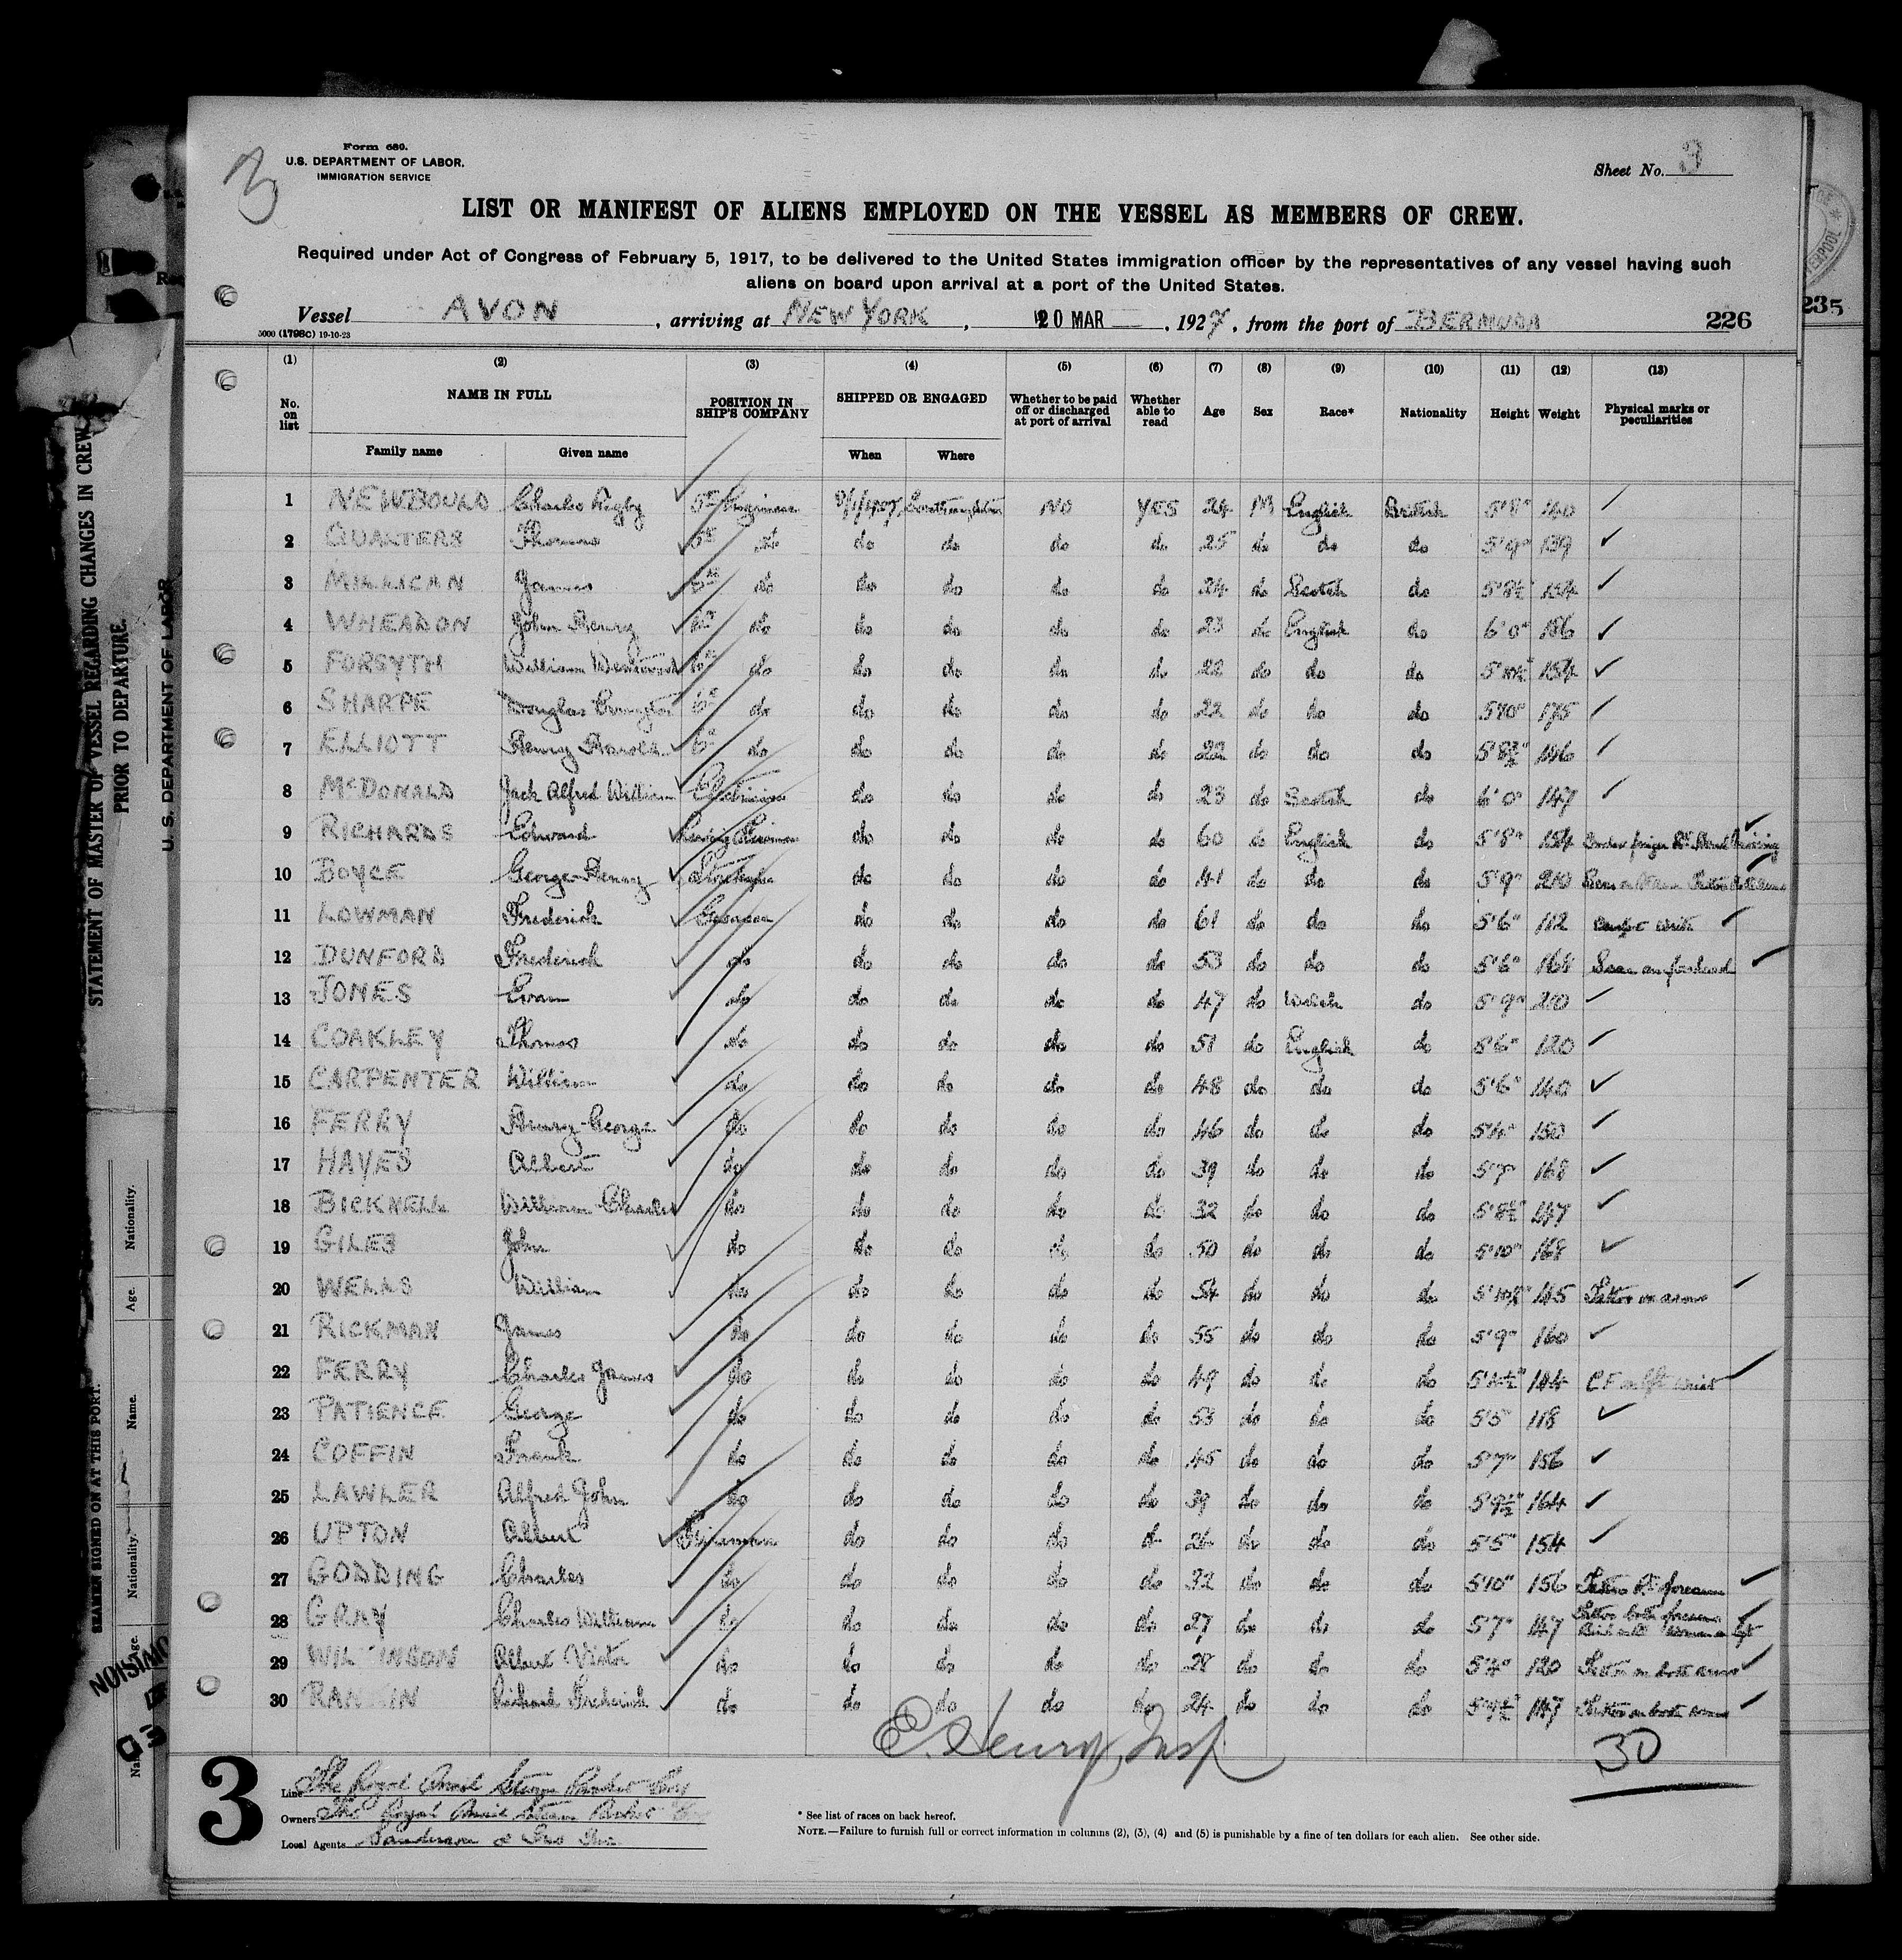 3
Form 689.
U.S. DEPARTMENT OF LABOR.
IMMIGRATION SERVICE
Sheet No. 3
LIST OR MANIFEST OF ALIENS EMPLOYED ON THE VESSEL AS MEMBERS OF CREW.
Required under Act of Congress of February 5, 1917, to be delivered to the United States immigration officer by the representatives of any vessel having such
aliens on board upon arrival at a port of the United States.
Vessel AVON , arriving at NEW YORK , 20 MAR , 1927 , from the port of BERMUDA 226
5000 (1798C) 19-10-23
235
(1) (2) (3) (4) (5) (6) (7) (8) (9) (10) (11) (12) (13)
No. on list NAME IN FULL POSITION IN SHIP'S COMPANY SHIPPED OR ENGAGED Whether to be paid off or discharged at port of arrival Whether able to read Age Sex Race* Nationality Height Weight Physical marks or peculiarities
Family name Given name When Where
1 NEWBOULD Charles Rigby 5th Southampton NO YES 24 M English British 5'8" 140
2 QUARTERS Thomas do do do do do 25 do do do 5'9" 139
3 MILLICAN James do do do do do 24 do Scotch do 154
4 WHEADON John Henry do do do do do 23 do English do 6'0" 186
5 FORSYTH William do do do do do 22 do do do 154
6 SHARPE Douglas do do do do do 22 do do do 5'10" 175
7 ELLIOTT Henry Harold do do do do do 22 do do do 5'8½" 146
8 McDONALD Jack Alfred William Electrician do do do do 23 do Scotch do 6'0" 147
9 RICHARDS Edward Leading Fireman do do do do 60 do English do 5'8" 154
10 BOYCE George Henry Storekeeper do do do do 41 do do do 5'9" 210
11 LOWMAN Frederick Greaser do do do do 61 do do do 5'6" 112
12 DUNFORD Frederick do do do do do 53 do do do 5'6" 168 Scar on forehead
13 JONES Evan do do do do do 47 do Welch do 5'9" 210
14 COAKLEY Thomas do do do do do 51 do English do 5'6" 120
15 CARPENTER William do do do do do 48 do do do 5'6" 140
16 FERRY Henry George do do do do do 46 do do do 5'4" 150
17 HAYES Albert do do do do do 39 do do do 5'7" 168
18 BICKNELL William Charles do do do do do 32 do do do 5'8½" 147
19 GILES John do do do do do 50 do do do 5'10" 168
20 WELLS William do do do do do 54 do do do 5'10½" 145 Tattoo on arms
21 RICKMAN James do do do do do 55 do do do 5'9" 160
22 FERRY Charles James do do do do do 49 do do do 5'4½" 144 CF on left wrist
23 PATIENCE George do do do do do 53 do do do 5'5" 118
24 COFFIN Frank do do do do do 45 do do do 5'7" 156
25 LAWLER Alfred John do do do do do 39 do do do 5'9½" 164
26 UPTON Albert Fireman do do do do 26 do do do 5'5" 154
27 GODDING Charles do do do do do 32 do do do 5'10" 156 Tattoo Rt forearm
28 GRAY Charles William do do do do do 27 do do do 5'7" 147 Tattoo both forearms
29 WILKINSON Albert Victor do do do do do 28 do do do 5'4" 120 Tattoo on both arms
30 RANKIN Richard Frederick do do do do do 24 do do do 5'9½" 147 Tattoo on both arms
E. Henry, Insp
30
3
Line The Royal Mail Steam Packet Coy
Owners The Royal Mail Steam Packet Coy
Local Agents Sanderson & Son Inc.
* See list of races on back hereof.
NOTE.—Failure to furnish full or correct information in columns (2), (3), (4) and (5) is punishable by a fine of ten dollars for each alien. See other side.
STATEMENT OF MASTER OF VESSEL REGARDING CHANGES IN CREW
PRIOR TO DEPARTURE.
U. S. DEPARTMENT OF LABOR
SEAMEN SIGNED ON AT THIS PORT.
Nationality.
Age.
Name.
Nationality.